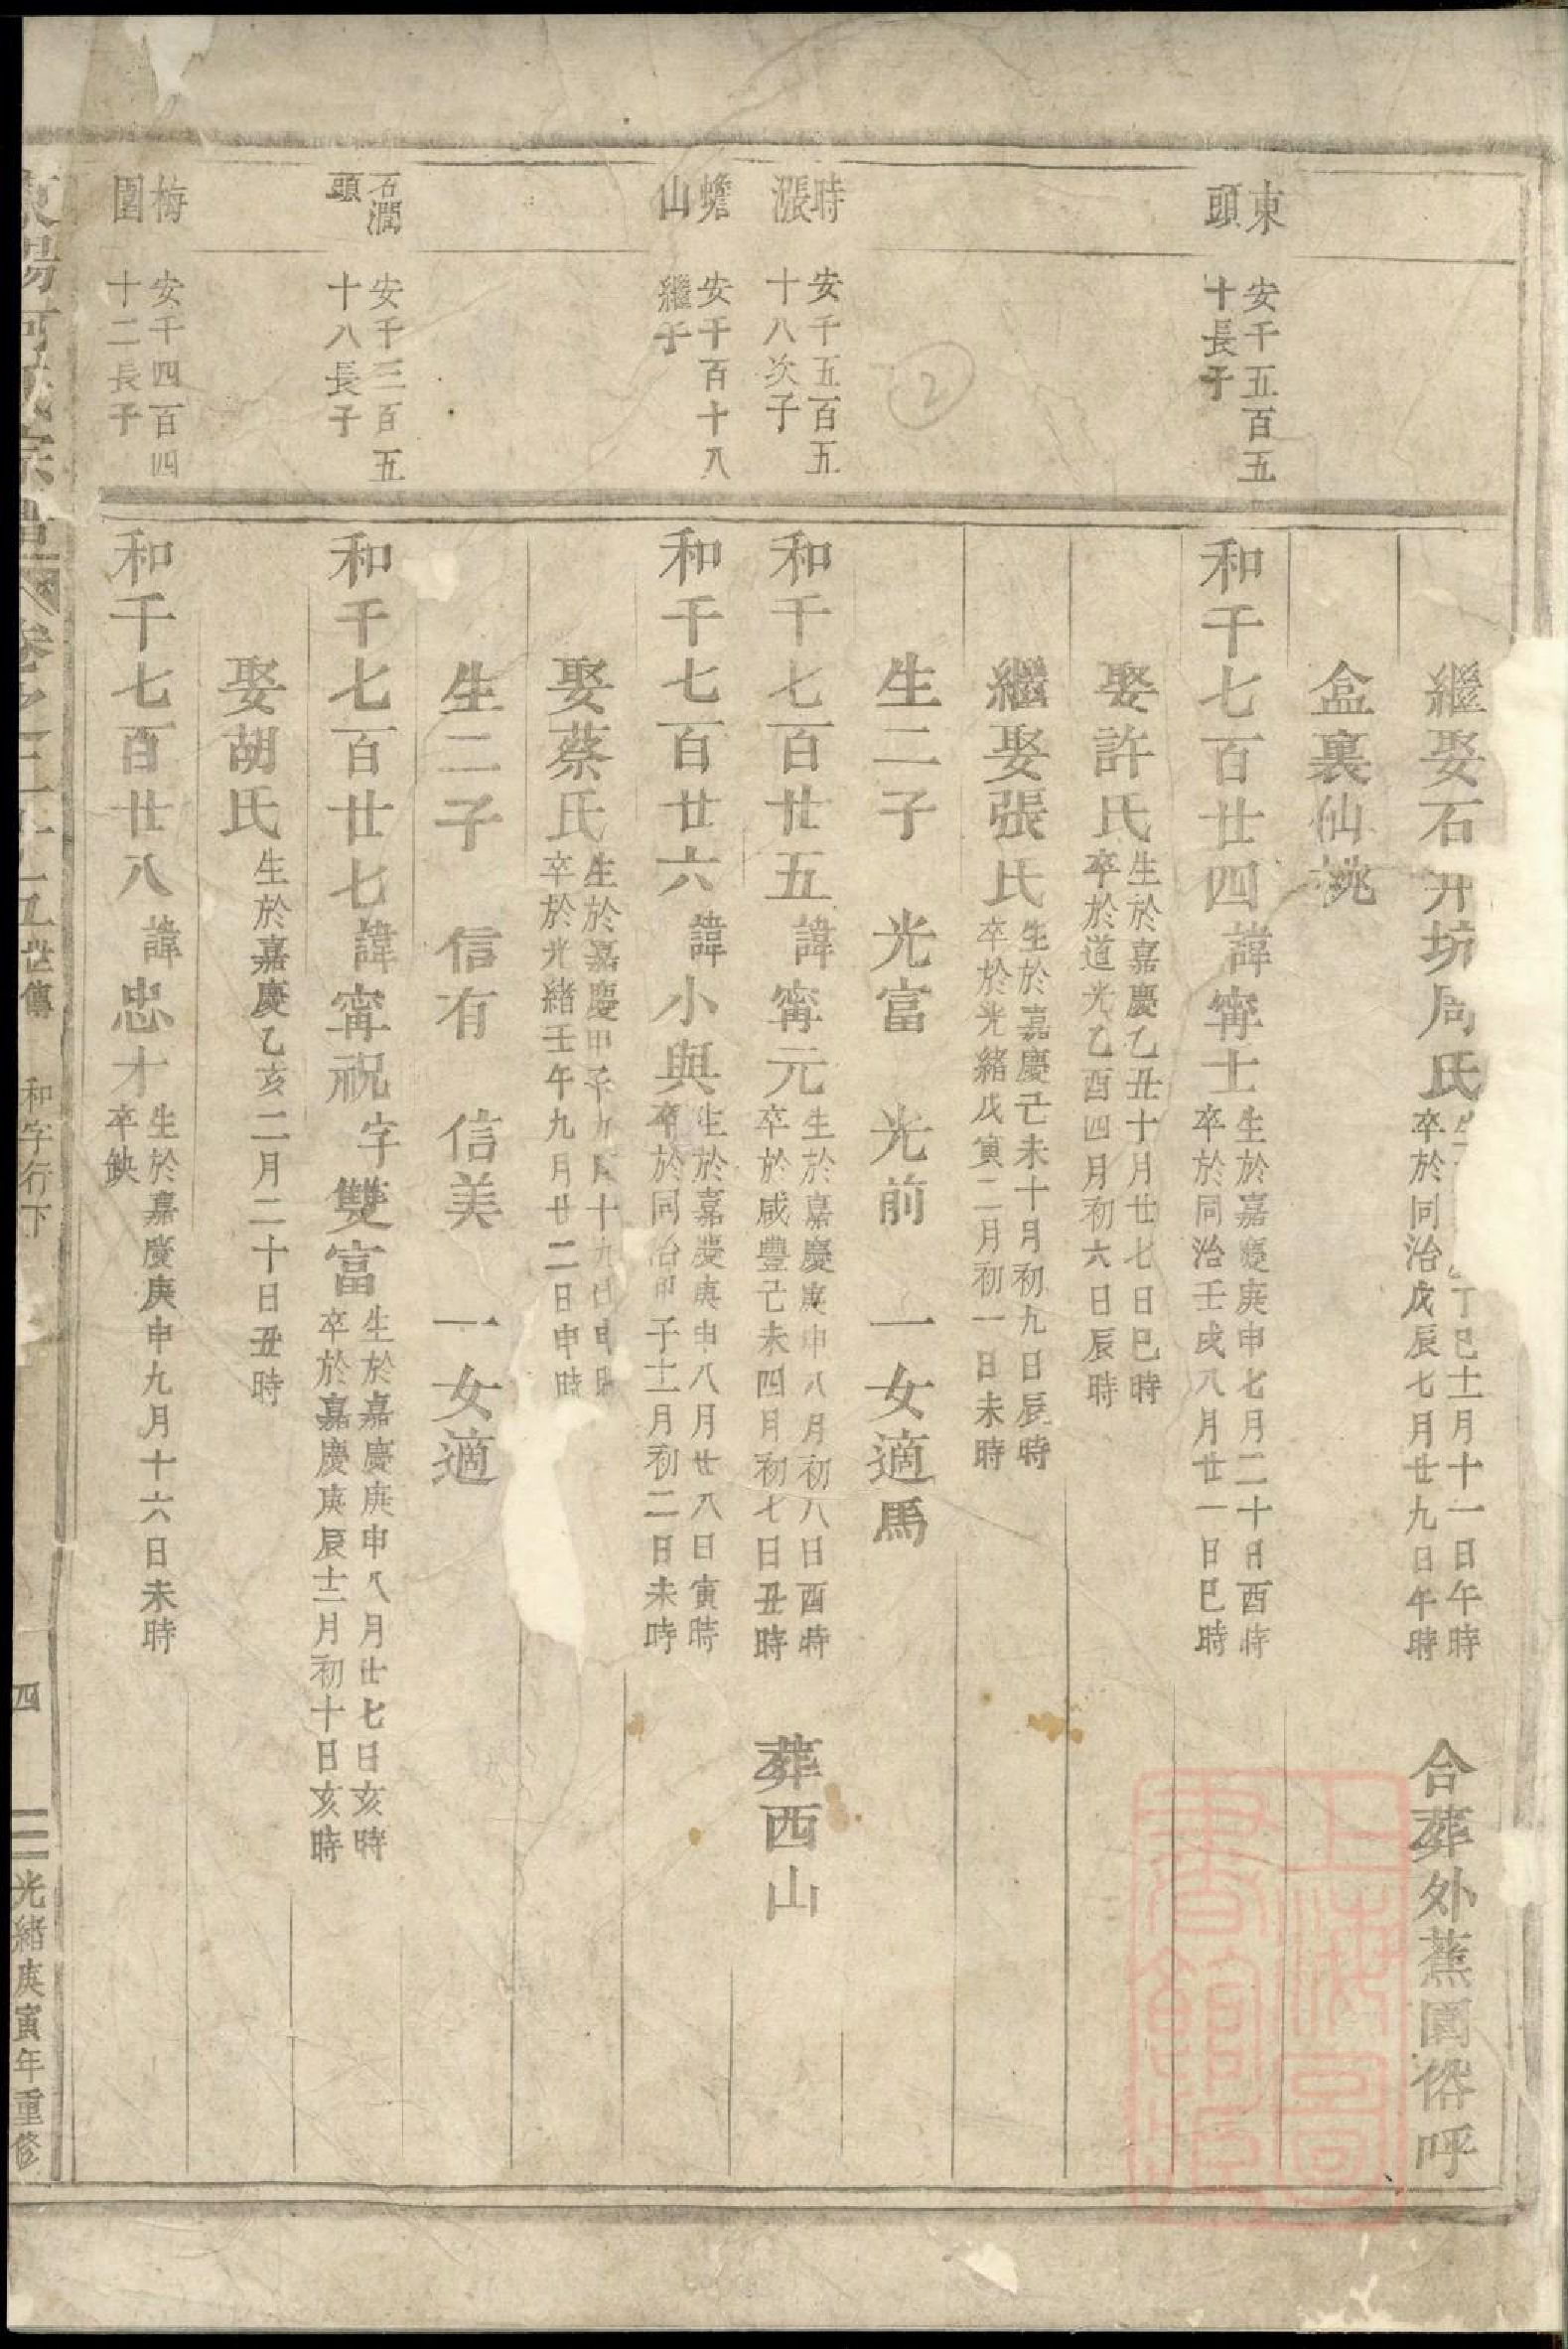 繼娶石井坊周氏
丁巳十一月十一日午時
卒於同治戊辰七月廿九日午時
合葬外蕉園俗呼
盒裏仙桃
東
頭
安千五百五
十長子
和千七百廿四諱甯士
生於嘉慶庚申七月二十日酉時
卒於同治壬戌八月廿一日巳時
娶許氏
生於嘉慶乙丑十月廿七日巳時
卒於道光乙酉四月初六日辰時
繼娶張氏
生於嘉慶己未十月初九日辰時
卒於光緒戊寅二月初一日未時
2
生二子 光富 光前 一女適馬
時
漲
安千五百五
十八次子
和千七百廿五諱甯元
生於嘉慶庚申八月初八日酉時
卒於咸豐己未四月初七日丑時
葬西山
蟾
山
安千百十八
繼子
和千七百廿六諱小與
生於嘉慶庚申八月廿八日寅時
卒於同治甲子十一月初二日未時
娶蔡氏
生於嘉慶甲子九月十九日申時
卒於光緒壬午九月廿二日申時
生二子 信有 信美 一女適
石澗
頭
安千三百五
十八長子
和千七百廿七諱甯祝字雙富
生於嘉慶庚申八月廿七日亥時
卒於嘉慶庚辰十二月初十日亥時
娶胡氏
生於嘉慶乙亥二月二十日丑時
梅
圍
安千四百四
十二長子
和千七百廿八諱忠才
生於嘉慶庚申九月十六日未時
卒缺
東陽何氏宗譜 卷之二十二 世傳 和字行下 四 光緒庚寅年重修
上海圖書館藏